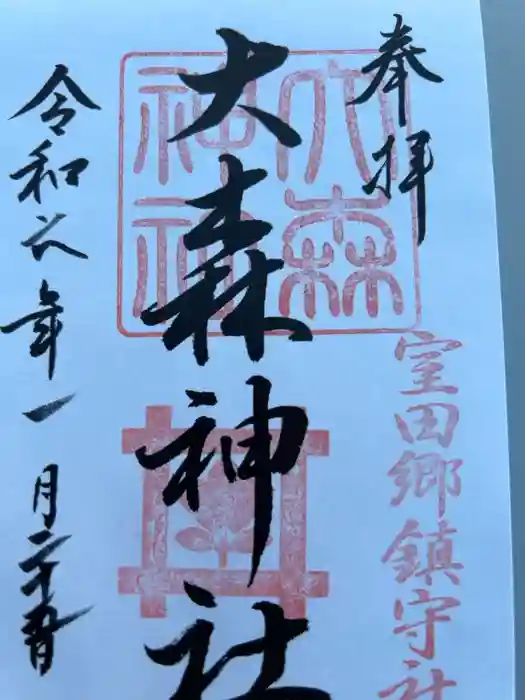 奉拝
室田郷鎮守社
大森神社
大森
神社
令和六年一月二十五日